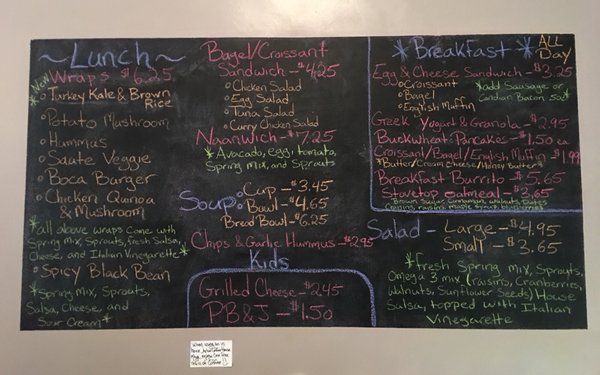 ~Lunch~
New
Wraps $6.25
* Turkey Kale & Brown
Rice
Potato Mushroom
Hummus
Saute Veggie
Boca Burger
Chicken Quinoa
& Mushroom
*all above wraps come with
Spring mix, Sprouts, fresh Salsa,
Cheese, and Italian Vinegarette*
Spicy Black Bean
*Spring mix, Sprouts,
Salsa, Cheese, and
Sour Cream*
Bagel/Croissant
Sandwich - $4.25
Chicken Salad
Egg Salad
Tuna Salad
Curry Chicken Salad
Naanwich - $7.25
*Avocado, egg, tomato,
Spring Mix, and Sprouts
Soups
Cup - $3.45
Bowl - $4.65
Bread Bowl - $6.25
Chips & Garlic Hummus - $2.95
Kids
Grilled Cheese - $2.45
PB&J - $1.50
*Breakfast* ALL
Day
Egg & Cheese Sandwich - $3.25
Croissant
Bagel
English Muffin
*add Sausage or
Candian Bacon 50¢*
Greek Yogurt & Granola - $2.95
Buckwheat Pancake - $1.50 ea
Croissant/Bagel/English Muffin - $1.99
*Butter/Cream Cheese/Honey Butter*
Breakfast Burrito - $5.65
Stovetop Oatmeal - $3.65
Brown Sugar, Cinnamon, walnuts, Dates
Salad - Large - $4.95
Small - $3.65
*fresh Spring mix, Sprouts,
Omega 3 mix (raisins, Cranberries,
Walnuts, Sunflower Seeds) House
Salsa, topped with Italian
Vinegarette*